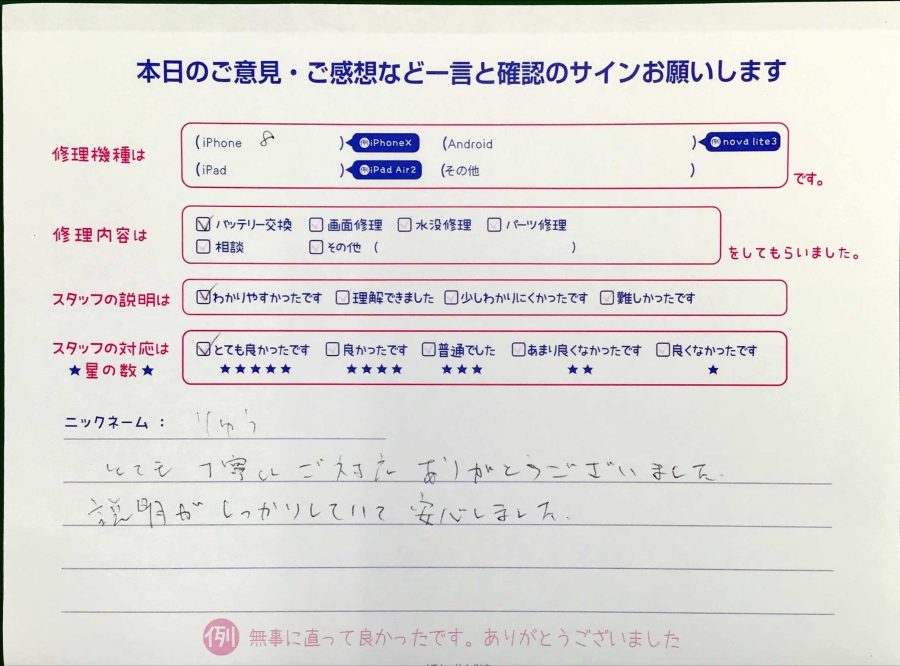 本日のご意見・ご感想など一言と確認のサインお願いします
修理機種は (iPhone 8 ) 例iPhoneX (Android ) 例nova lite3
(iPad ) 例iPad Air2 (その他 ) です。
修理内容は ☑バッテリー交換 □画面修理 □水没修理 □パーツ修理
□相談 □その他 ( ) をしてもらいました。
スタッフの説明は ☑わかりやすかったです □理解できました □少しわかりにくかったです □難しかったです
スタッフの対応は ☑とても良かったです □良かったです □普通でした □あまり良くなかったです □良くなかったです
★星の数★ ★★★★★ ★★★★ ★★★ ★★ ★
ニックネーム： りゅう
とても丁寧にご対応ありがとうございました。
説明がしっかりしていて安心しました。
例 無事に直って良かったです。ありがとうございました